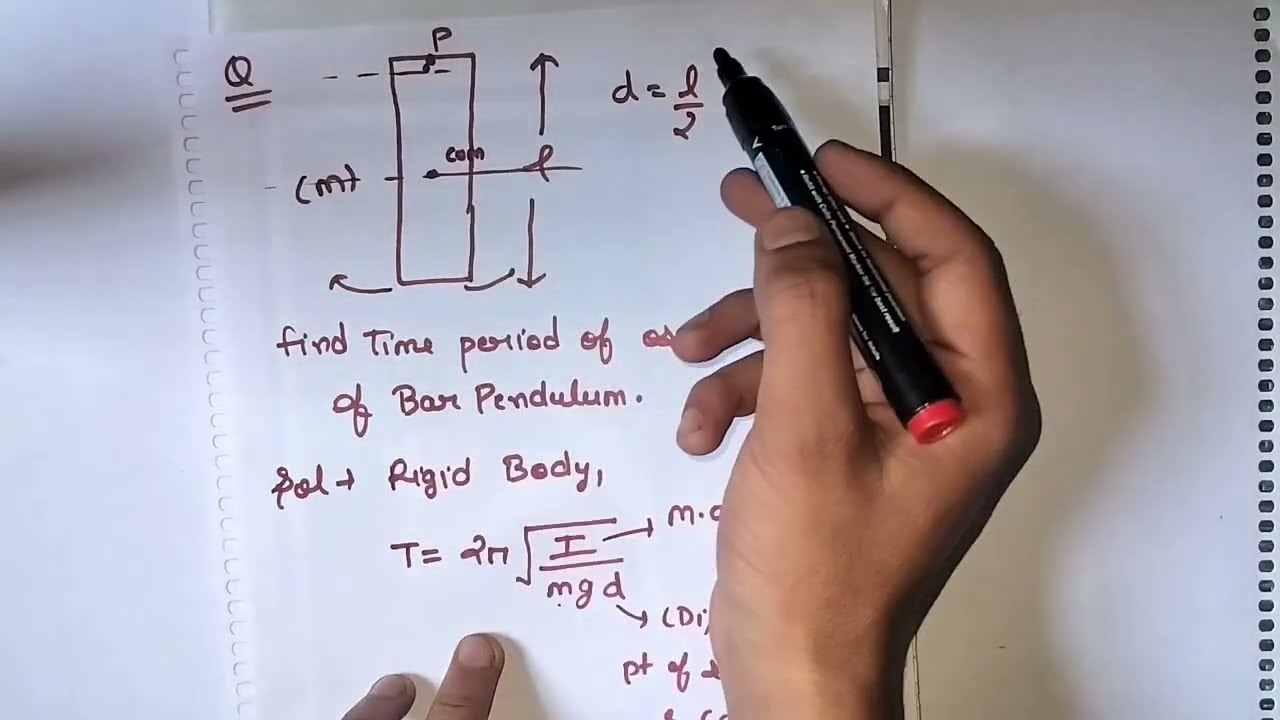 Q
P
d = l/2
com
l
(m)
find Time period of
of Bar Pendulum.
Sol → Rigid Body,
T = 2π √(I/mgd)
→ m.o
→ (Di
pt of